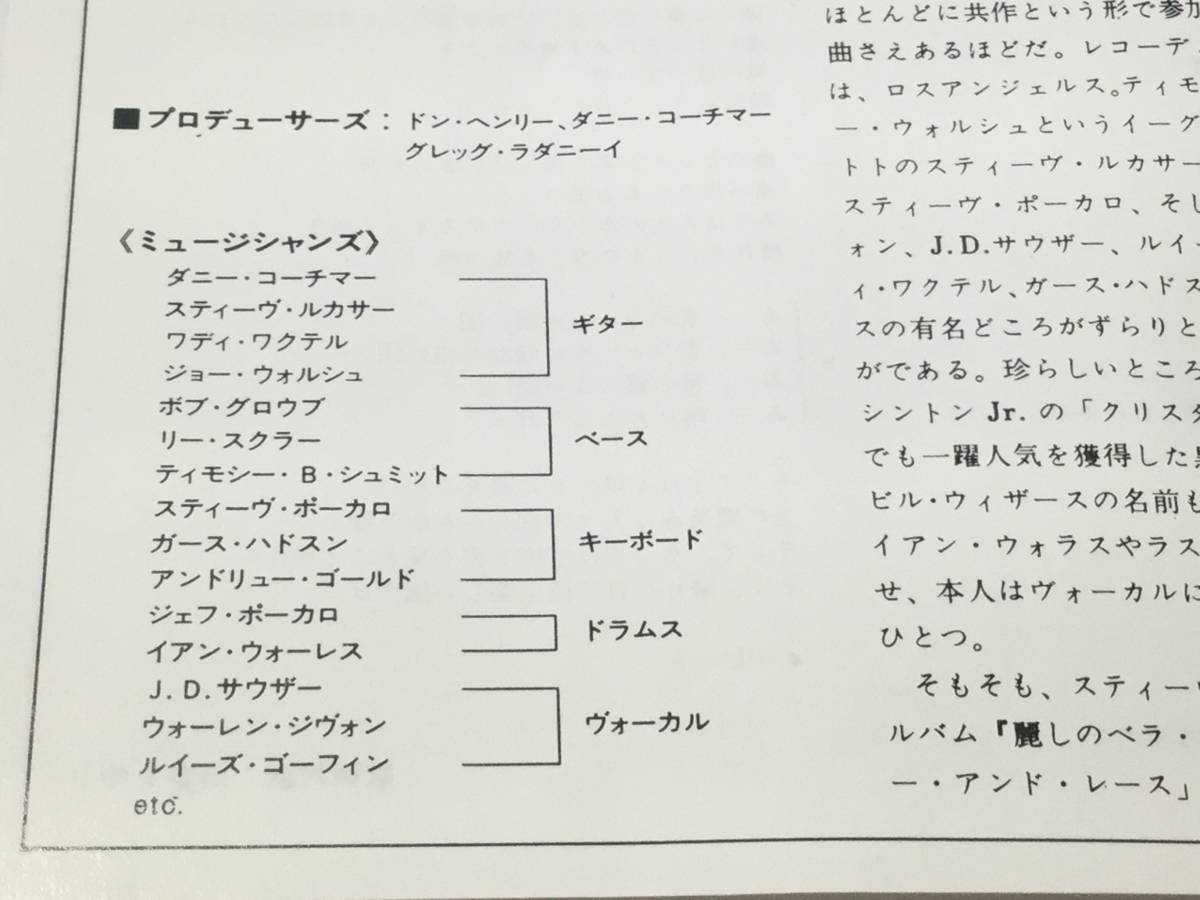 ■プロデューサーズ：ドン・ヘンリー、ダニー・コーチマー
グレッグ・ラダニーイ
《ミュージシャンズ》
ダニー・コーチマー
スティーヴ・ルカサー
ワディ・ワクテル
ジョー・ウォルシュ
ギター
ボブ・グロウブ
リー・スクラー
ティモシー・B・シュミット
ベース
スティーヴ・ポーカロ
ガース・ハドスン
アンドリュー・ゴールド
キーボード
ジェフ・ポーカロ
イアン・ウォーレス
ドラムス
J.D.サウザー
ウォーレン・ジヴォン
ルイーズ・ゴーフィン
ヴォーカル
etc.
ほとんどに共作という形で参加
曲さえあるほどだ。レコーデ
は、ロスアンジェルス。ティモ
ー・ウォルシュというイーグ
トトのスティーヴ・ルカサー
スティーヴ・ポーカロ、そし
ォン、J.D.サウザー、ルイ
ィ・ワクテル、ガース・ハドス
スの有名どころがずらりと
がである。珍らしいところ
シントンJr.の「クリスタ
でも一躍人気を獲得した
ビル・ウィザースの名前も
イアン・ウォラスやラス
せ、本人はヴォーカルに
ひとつ。
そもそも、スティー
ルバム『麗しのベラ・
ー・アンド・レース」